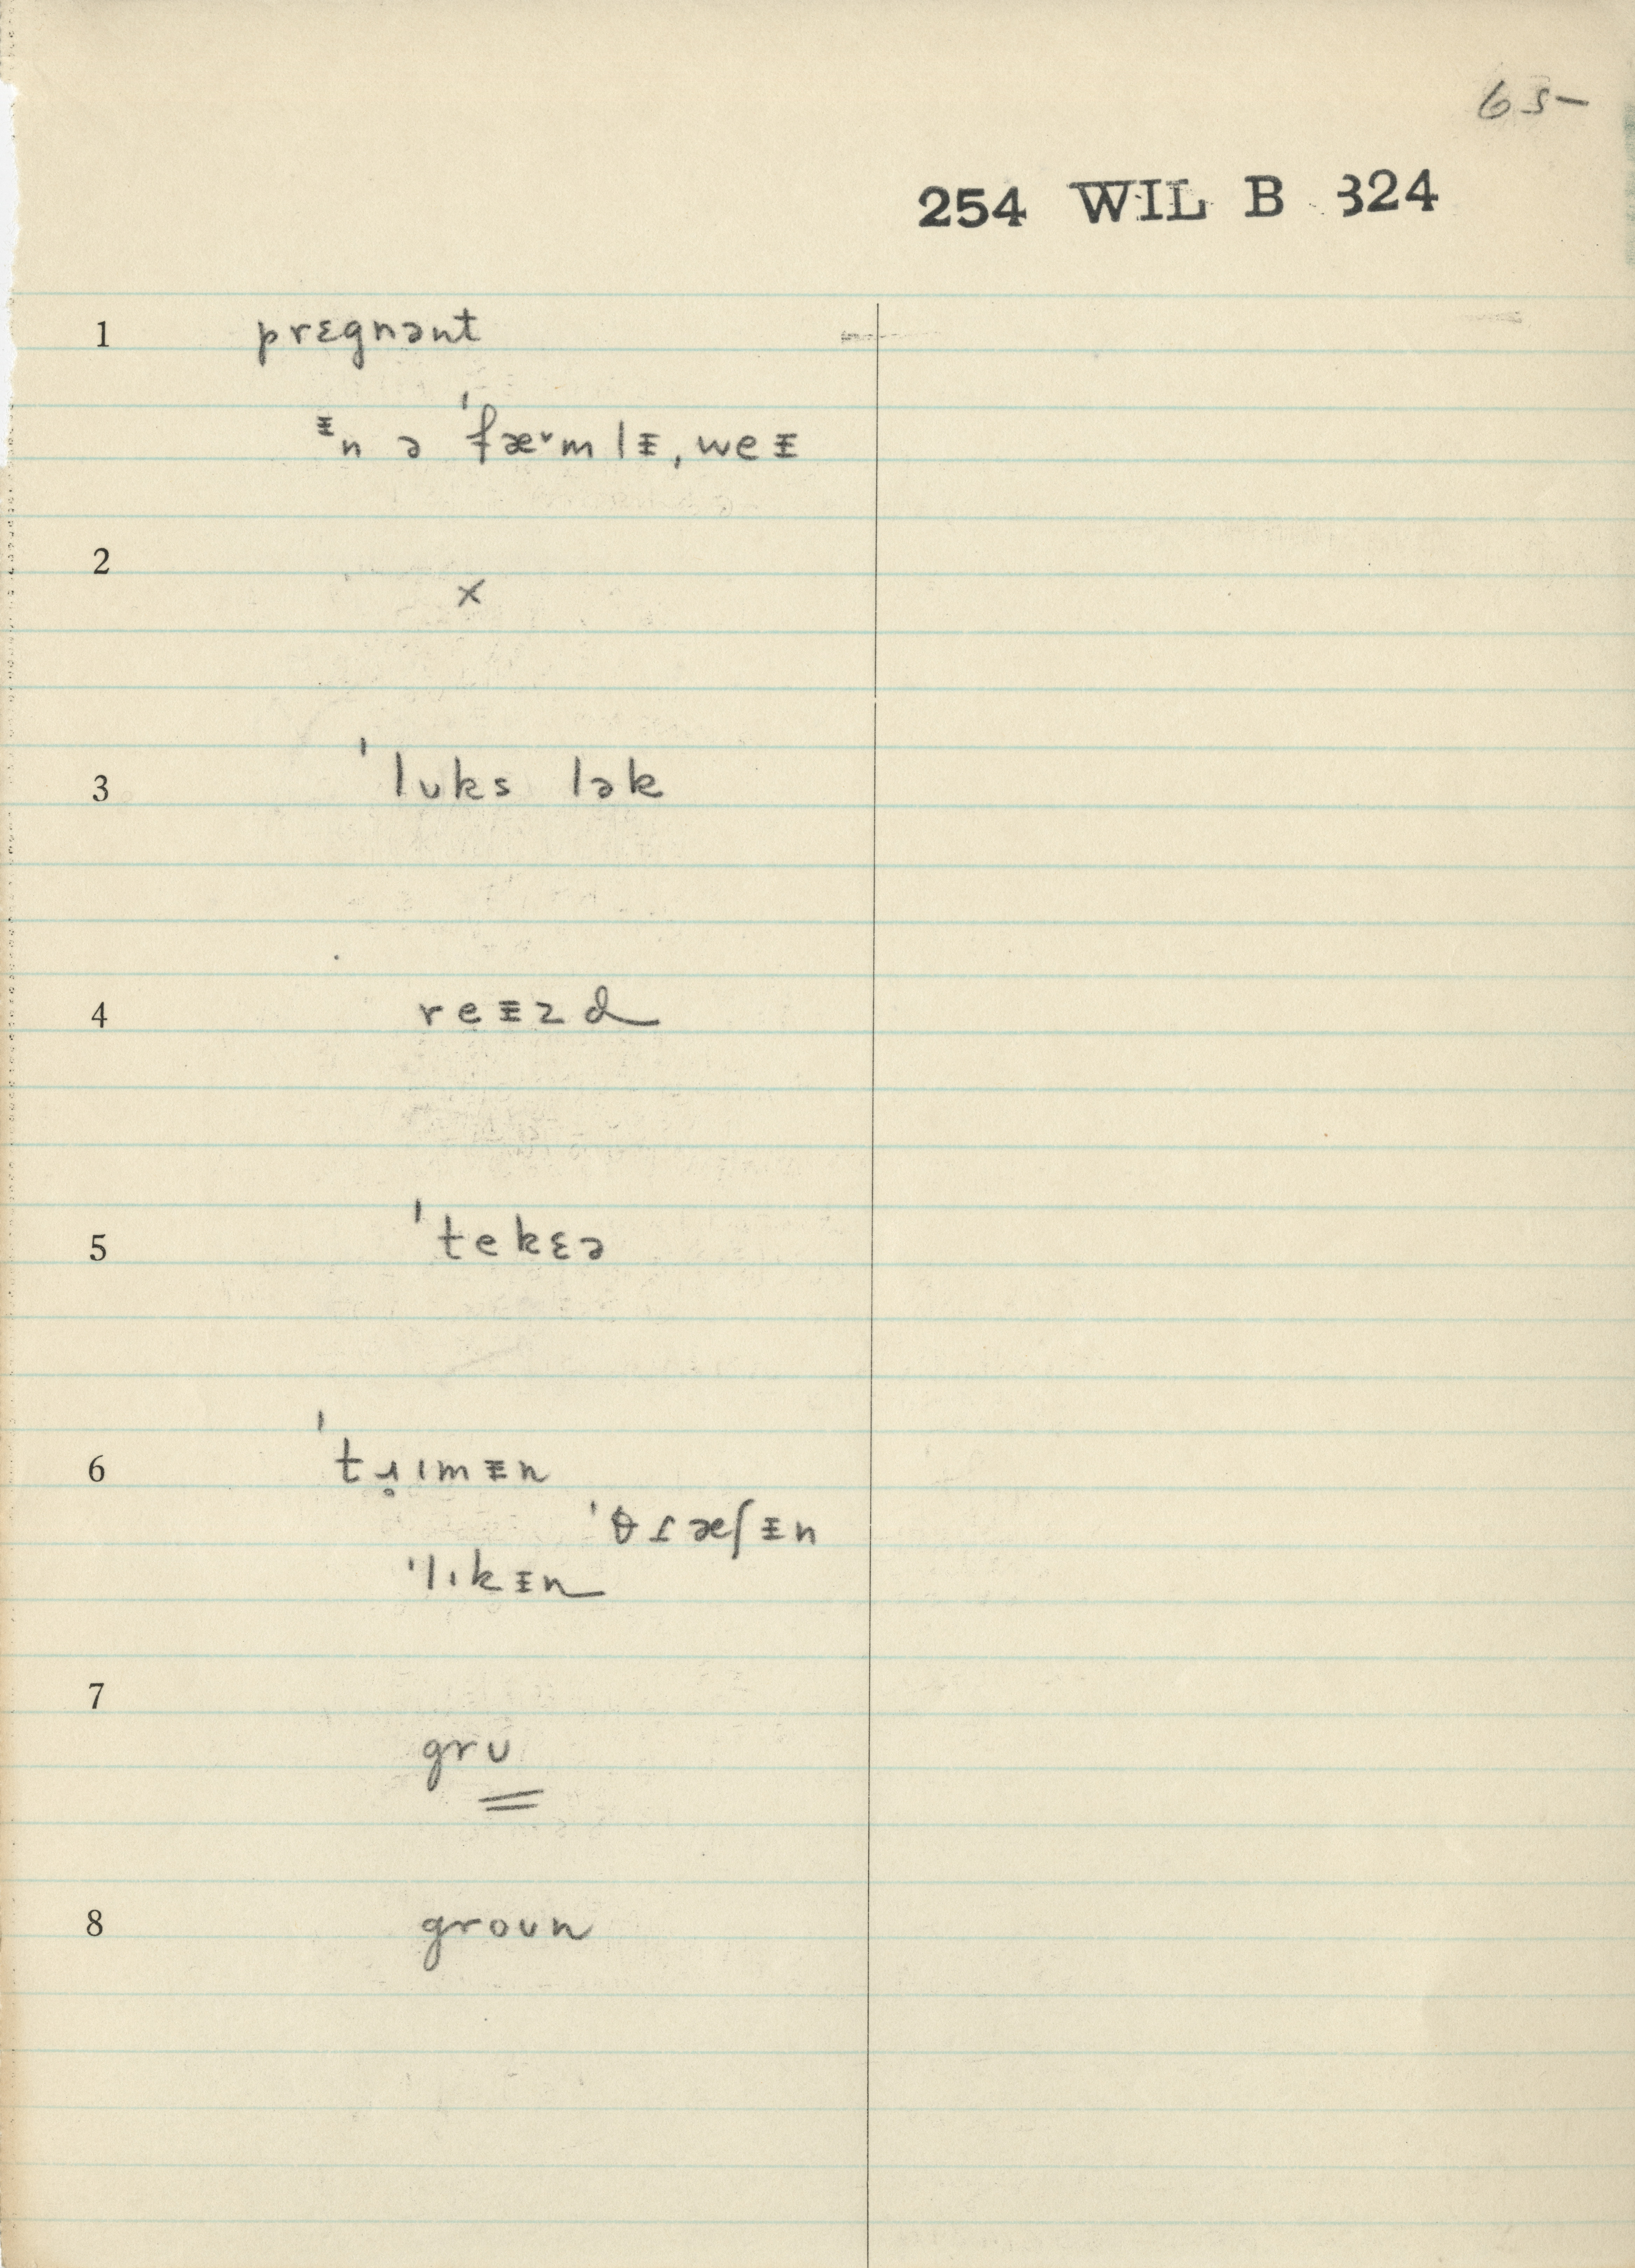 65-
254 WIL B 324
1 prɛgnənt
ᵻn ə ˈfæᵛmlᵻ, weᵻ
2 x
3 ˈlʊks lək
4 reᵻzd
5 ˈtekɛə
6 ˈtɹ̥ɪmᵻn
ˈθɾæʃᵻn
ˈlɪkᵻn
7 grʊ
8 groʊn